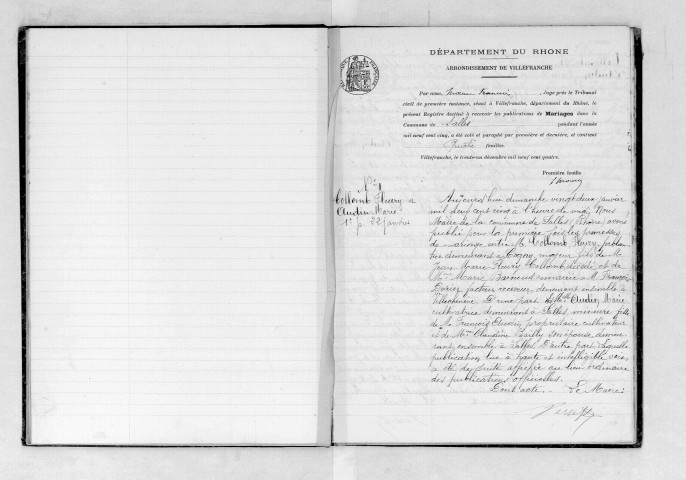 DÉPARTEMENT DU RHONE
ARRONDISSEMENT DE VILLEFRANCHE
Par nous, Juge près le Tribunal
civil de première instance, séant à Villefranche, département du Rhône, le
présent Registre destiné à recevoir les publications de Mariages dans la
Commune de Salles pendant l'année
mil neuf cent cinq, a été coté et paraphé par première et dernière, et contient
feuilles.
Villefranche, le trente-un décembre mil neuf cent quatre.
Première feuille
N° 1
Collomb Fleury &
Audin Marie
1e p. 22 janvier
Aujourd'hui dimanche vingt deux janvier
mil neuf cent cinq à l'heure de midi, Nous
Maire de la commune de Salles (Rhône) avons
publié pour la première fois les promesses
de mariage entre M. Collomb Fleury,
demeurant à Cogny, majeur, fils de M.
Jean Marie Fleury Collomb décédé et de
Marie remariée à M. François
facteur receveur, demeurant ensemble à
D'une part. & Mlle Audin Marie
cultivatrice demeurant à Salles, mineure fille
de M. François Audin propriétaire cultivateur
et de Mme Claudine son épouse, demeu-
rant ensemble à Salles. D'autre part. Laquelle
publication, lue à haute et intelligible voix,
a été de suite affichée au lieu ordinaire
des publications officielles.
Dont acte. Le Maire: